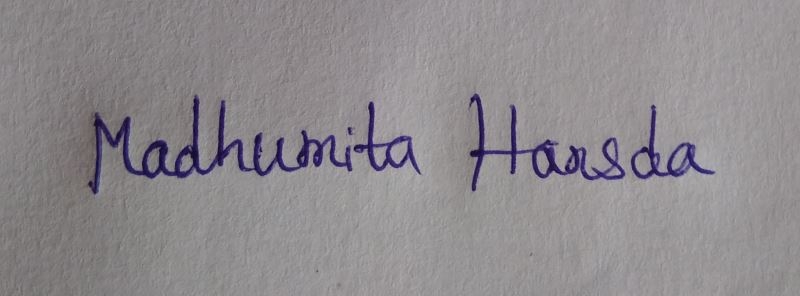 Madhumita Hansda